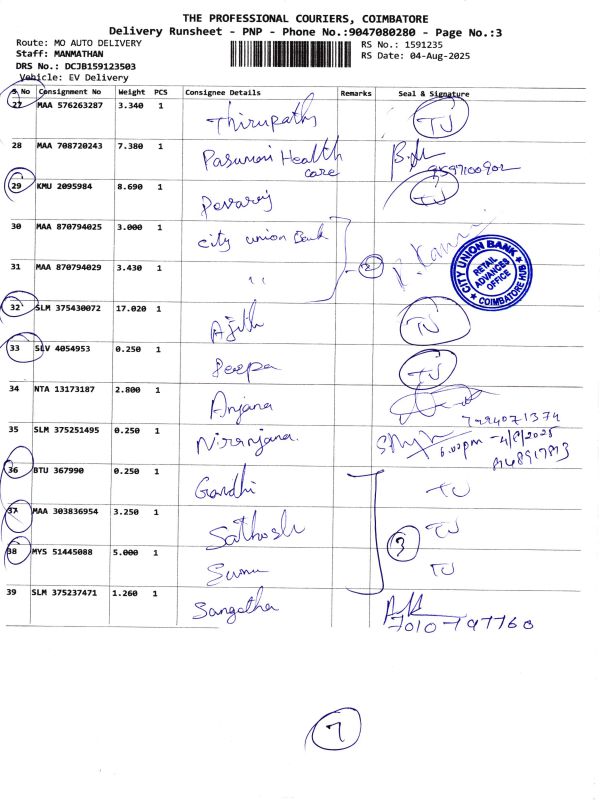 THE PROFESSIONAL COURIERS, COIMBATORE
Delivery Runsheet - PNP - Phone No.:9047080280 - Page No.:3
Route: MO AUTO DELIVERY
RS No.: 1591235
Staff: MANMATHAN
RS Date: 04-Aug-2025
DRS No.: DCJB159123503
Vehicle: EV Delivery
S No Consignment No Weight PCS Consignee Details Remarks Seal & Signature
27 MAA 576263287 3.340 1 Thirupathy TJ
28 MAA 708720243 7.380 1 Pasumai Health care
29 KMU 2095984 8.690 1 Devaraj TJ
30 MAA 870794025 3.000 1 City union Bank
31 MAA 870794029 3.430 1 " 2
CITY UNION BANK
RETAIL ADVANCES OFFICE
COIMBATORE HUB
32 SLM 375430072 17.020 1 Ajith TJ
33 SLV 4054953 0.250 1 Deepa TJ
34 NTA 13173187 2.800 1 Anjana
35 SLM 375251495 0.250 1 Niranjana 6.00pm -4/8/2025
36 BTU 367990 0.250 1 Gandhi TJ
37 MAA 303836954 3.250 1 Sathosh TJ
3
38 MYS 51445088 5.000 1 Sumu TJ
39 SLM 375237471 1.260 1 Sangetha 7010797760
7